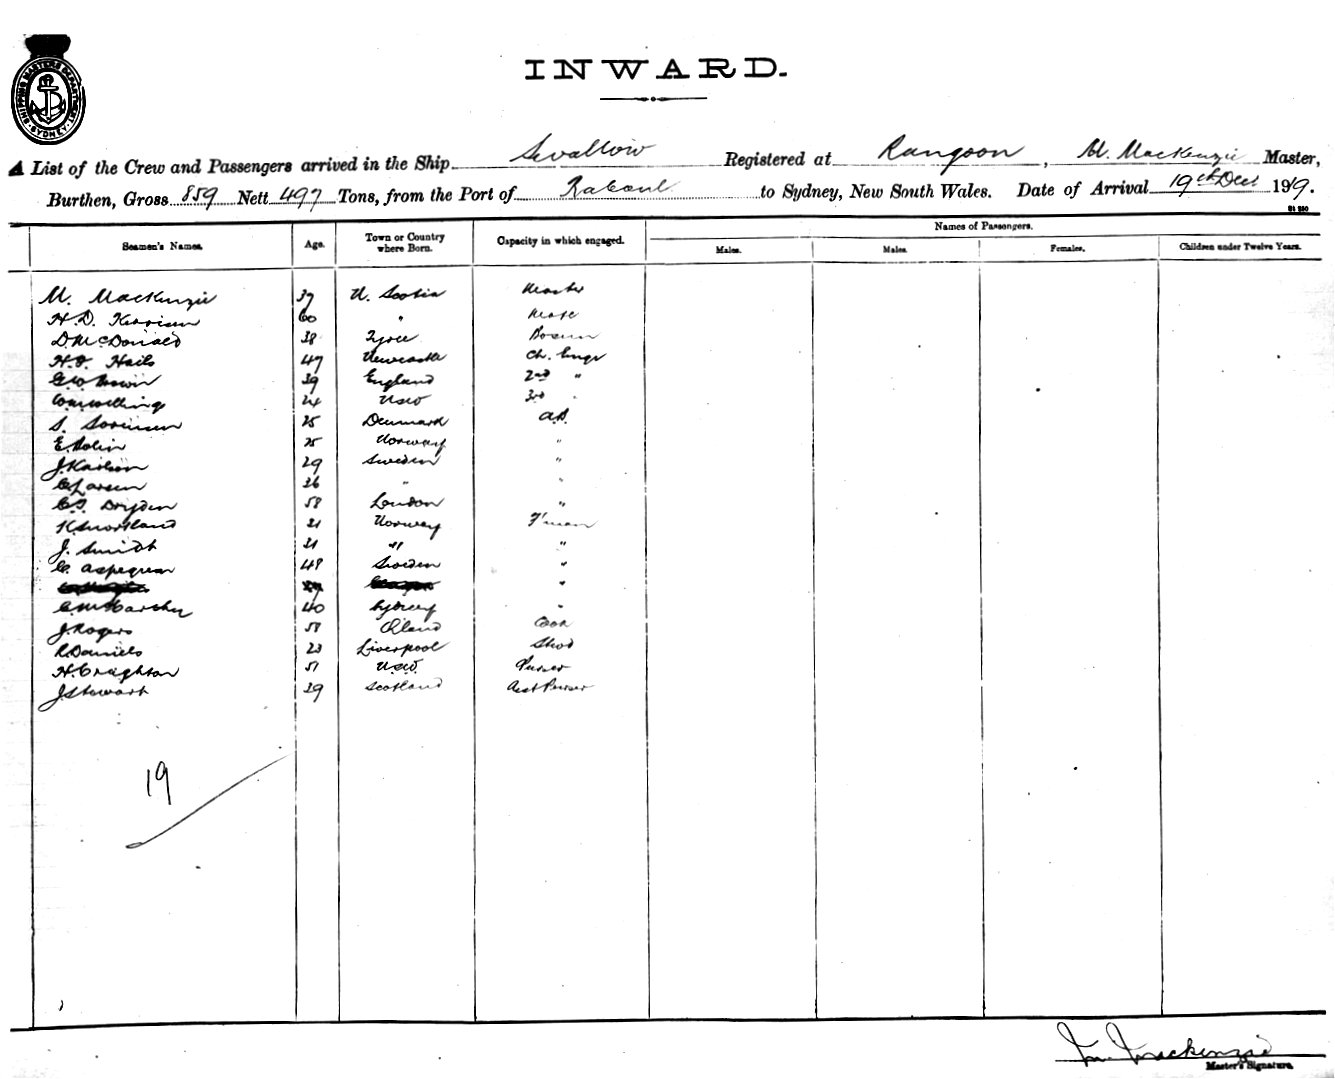 SHIPPING MASTERS DEPARTMENT SYDNEY
INWARD.
A List of the Crew and Passengers arrived in the Ship Swallow Registered at Rangoon, M. MacKenzie Master,
Burthen, Gross 859 Nett 497 Tons, from the Port of Rabaul to Sydney, New South Wales. Date of Arrival 19th Dec 1919.
Names of Passengers.
Seamen's Names. Age. Town or Country where Born. Capacity in which engaged. Males. Males. Females. Children under Twelve Years.
M. MacKenzie 39 N. Scotia Master
H. D. 60 " Mate
D. McDonald 38 Tyree Bosun
H. Hails 47 Newcastle Ch. Engr
Geo Brown 39 England 2nd "
24 NSW 3rd "
S. Sorensen 25 Denmark A.B.
E. 25 Norway "
J. Karlson 29 Sweden "
C. Larsen 36 " "
C. J. Dryden 58 London "
K. Snortland 21 Norway F'man
J. Smidt 21 " "
C. Aspegren 48 Sweden "
"
40 Sydney "
J. Rogers 58 Qland Cook
R. Daniels 23 Liverpool Stwd
H. Creighton 51 NSW. Purser
J. Stewart 29 Scotland Asst Purser
19
M. Mackenzie
Master's Signature.